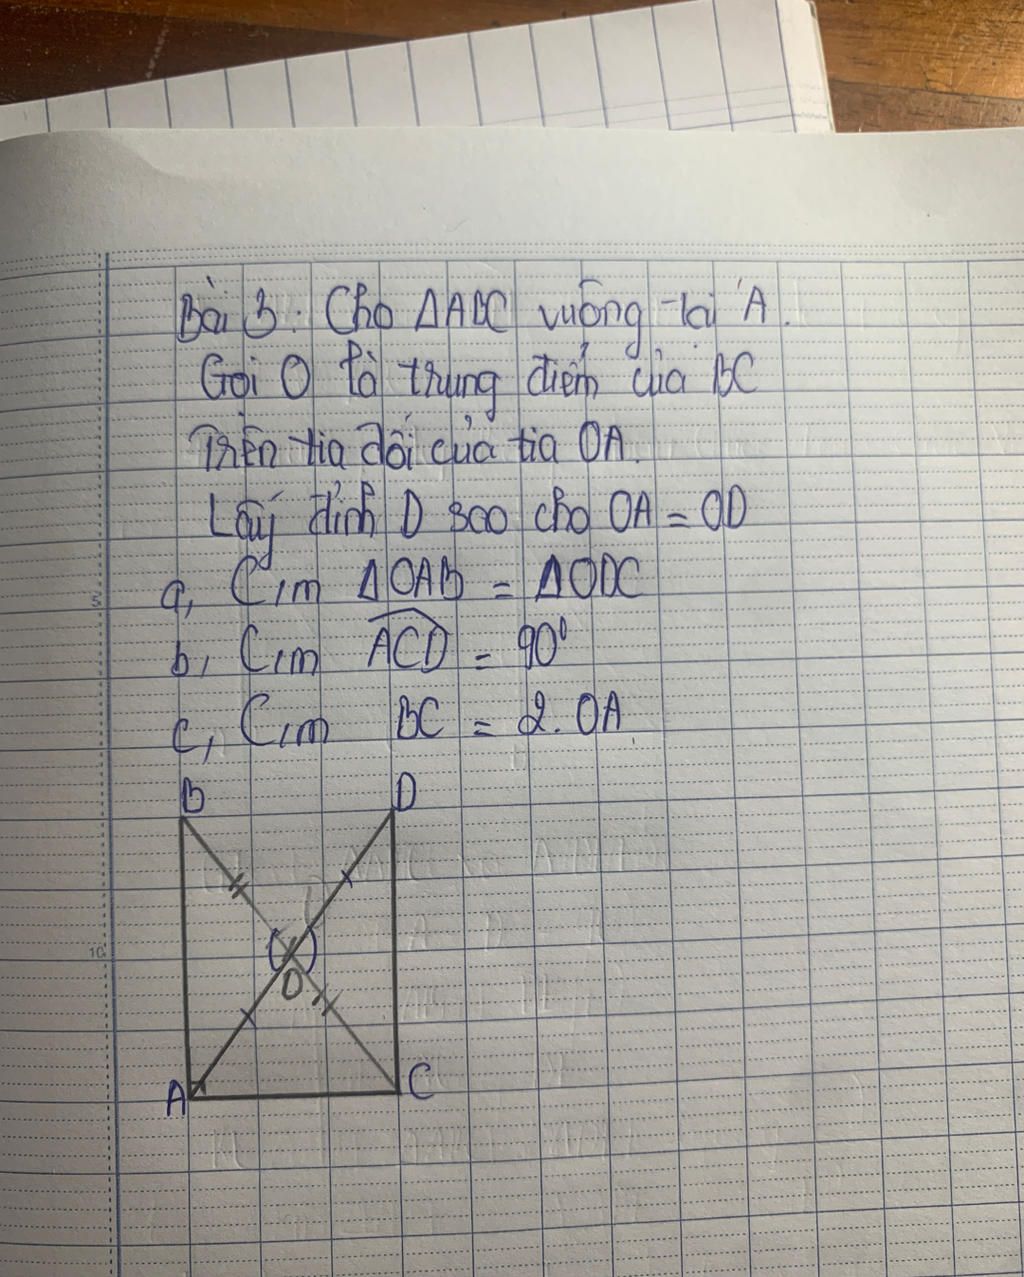 Bài 3: Cho ΔABC vuông tại A.
Gọi O là trung điểm của BC
Trên tia đối của tia OA.
Lấy đỉnh D sao cho OA = OD
a, C/m ΔOAB = ΔODC
b, C/m ACD = 90⁰
c, C/m BC = 2.OA
B D
O
A C
5
10